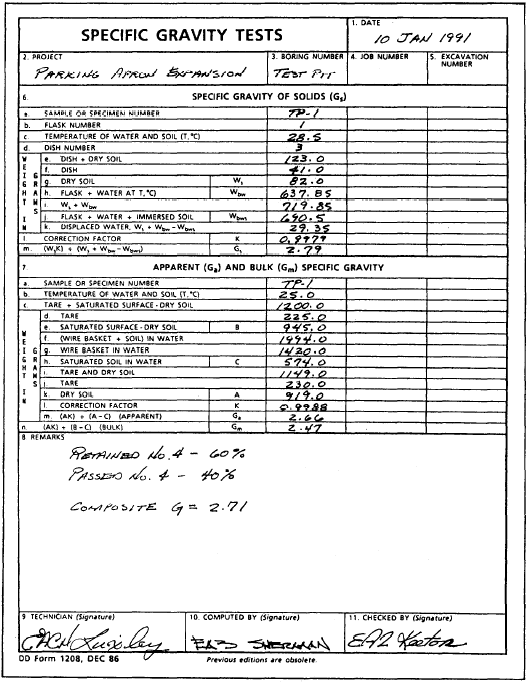 SPECIFIC GRAVITY TESTS
1. DATE
10 JAN 1991
2. PROJECT
PARKING APRON EXPANSION
3. BORING NUMBER
TEST PIT
4. JOB NUMBER
5. EXCAVATION NUMBER
6. SPECIFIC GRAVITY OF SOLIDS (Gs)
a. SAMPLE OR SPECIMEN NUMBER TP-1
b. FLASK NUMBER 1
c. TEMPERATURE OF WATER AND SOIL (T,°C) 28.5
d. DISH NUMBER 3
WEIGHT IN GRAMS
e. DISH + DRY SOIL 123.0
f. DISH 41.0
g. DRY SOIL Ws 82.0
h. FLASK + WATER AT T,°C) Wbw 637.85
i. Ws + Wbw 719.85
j. FLASK + WATER + IMMERSED SOIL Wbws 690.5
k. DISPLACED WATER, Ws + Wbw - Wbws 29.35
l. CORRECTION FACTOR K 0.9979
m. (WsK) ÷ (Ws + Wbw - Wbws) Gs 2.79
7. APPARENT (Ga) AND BULK (Gm) SPECIFIC GRAVITY
a. SAMPLE OR SPECIMEN NUMBER TP-1
b. TEMPERATURE OF WATER AND SOIL (T,°C) 25.0
c. TARE + SATURATED SURFACE-DRY SOIL 1200.0
WEIGHT IN GRAMS
d. TARE 225.0
e. SATURATED SURFACE-DRY SOIL B 945.0
f. (WIRE BASKET + SOIL) IN WATER 1994.0
g. WIRE BASKET IN WATER 1420.0
h. SATURATED SOIL IN WATER C 574.0
i. TARE AND DRY SOIL 1149.0
j. TARE 230.0
k. DRY SOIL A 919.0
l. CORRECTION FACTOR K 0.9988
m. (AK) ÷ (A-C) (APPARENT) Ga 2.66
n. (AK) ÷ (B-C) (BULK) Gm 2.47
8 REMARKS
RETAINED NO. 4 - 60%
PASSED NO. 4 - 40%
COMPOSITE G = 2.71
9 TECHNICIAN (Signature)
10. COMPUTED BY (Signature)
EA3 SHERMAN
11. CHECKED BY (Signature)
DD Form 1208, DEC 86
Previous editions are obsolete.